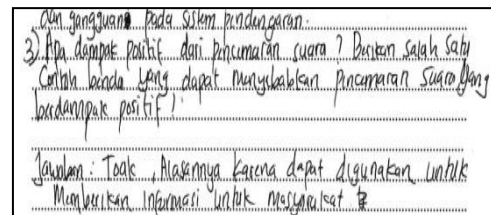 dan gangguan pada sistem pendengaran.
3) Apa dampak positif dari pencemaran suara ? Berikan salah satu
Contoh benda yang dapat menyebabkan pencemaran suara yang
berdampak positif !
Jawaban : Toak , Alasannya karena dapat digunakan untuk
Memberikan informasi untuk masyarakat